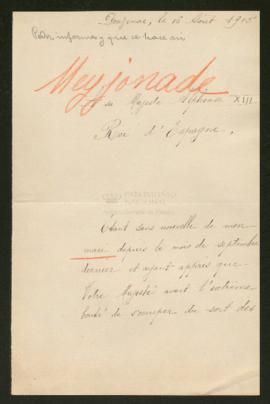 Donzenac, le 16 Août 1915
Pedir informes y que se hace an
Meyjonade
Sa Majesté Alphonse XIII
Roi d'Espagne,
PATRIMONIO
NACIONAL
Etant sans nouvelle de mon
mari depuis le mois de septembre
dernier et ayant appris que
Votre Majesté avait l'extrême
bonté de s'occuper du sort des